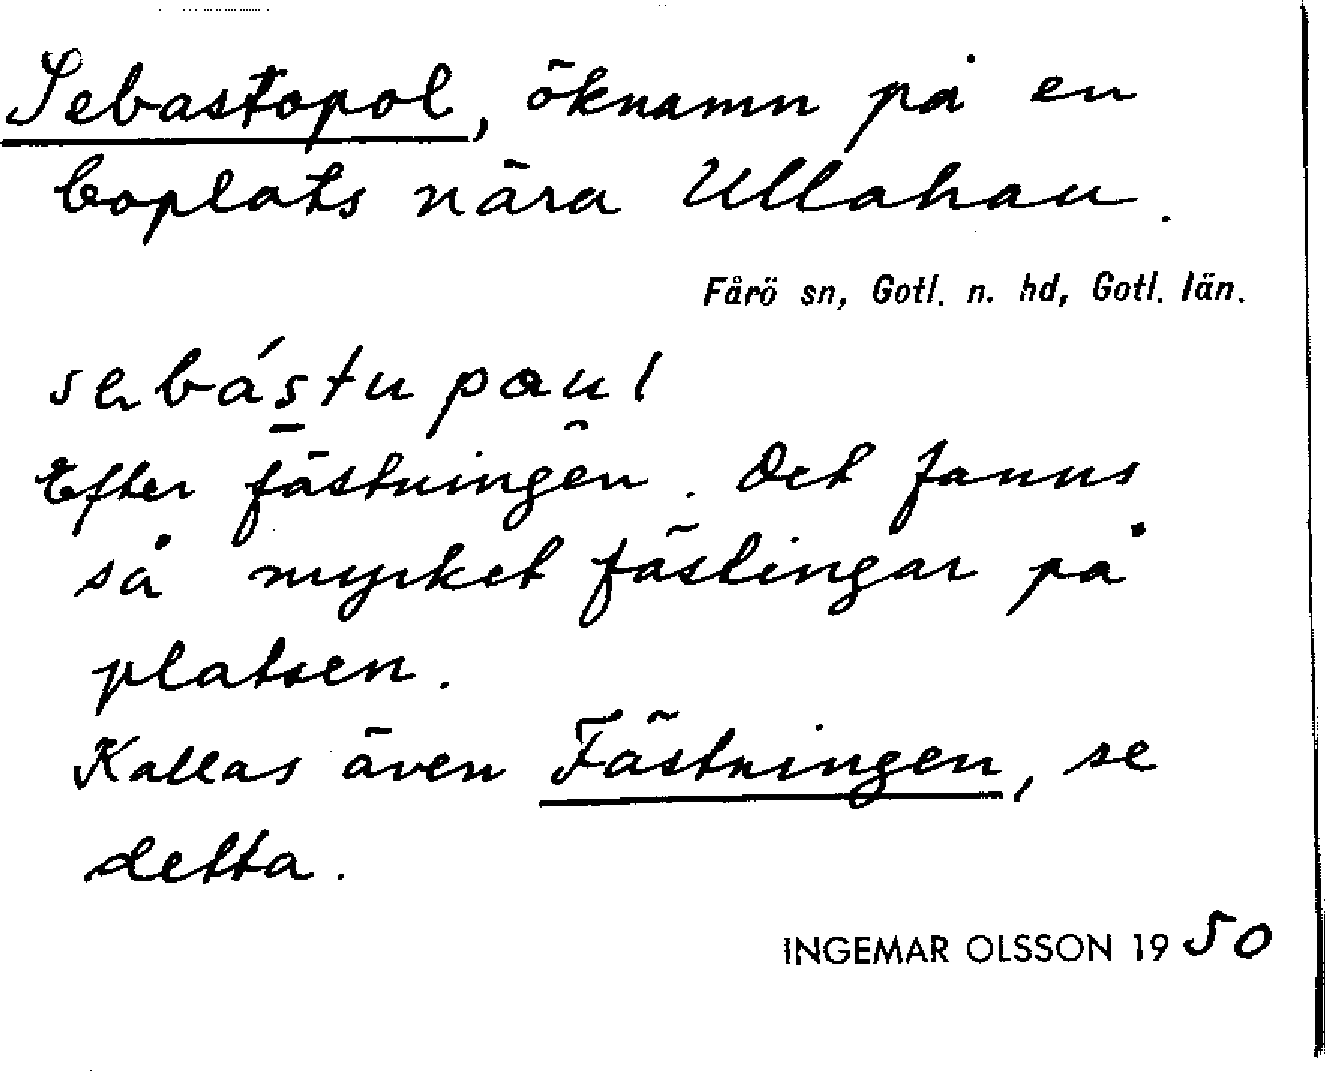 Sebastopol, öknamn på en
boplats nära Ullahau.
Fårö sn, Gotl. n. hd, Gotl. län.
sebástupau̯l
Efter fästningen. Det fanns
så mycket fästingar på
platsen.
Kallas även Fästningen, se
detta.
INGEMAR OLSSON 1950